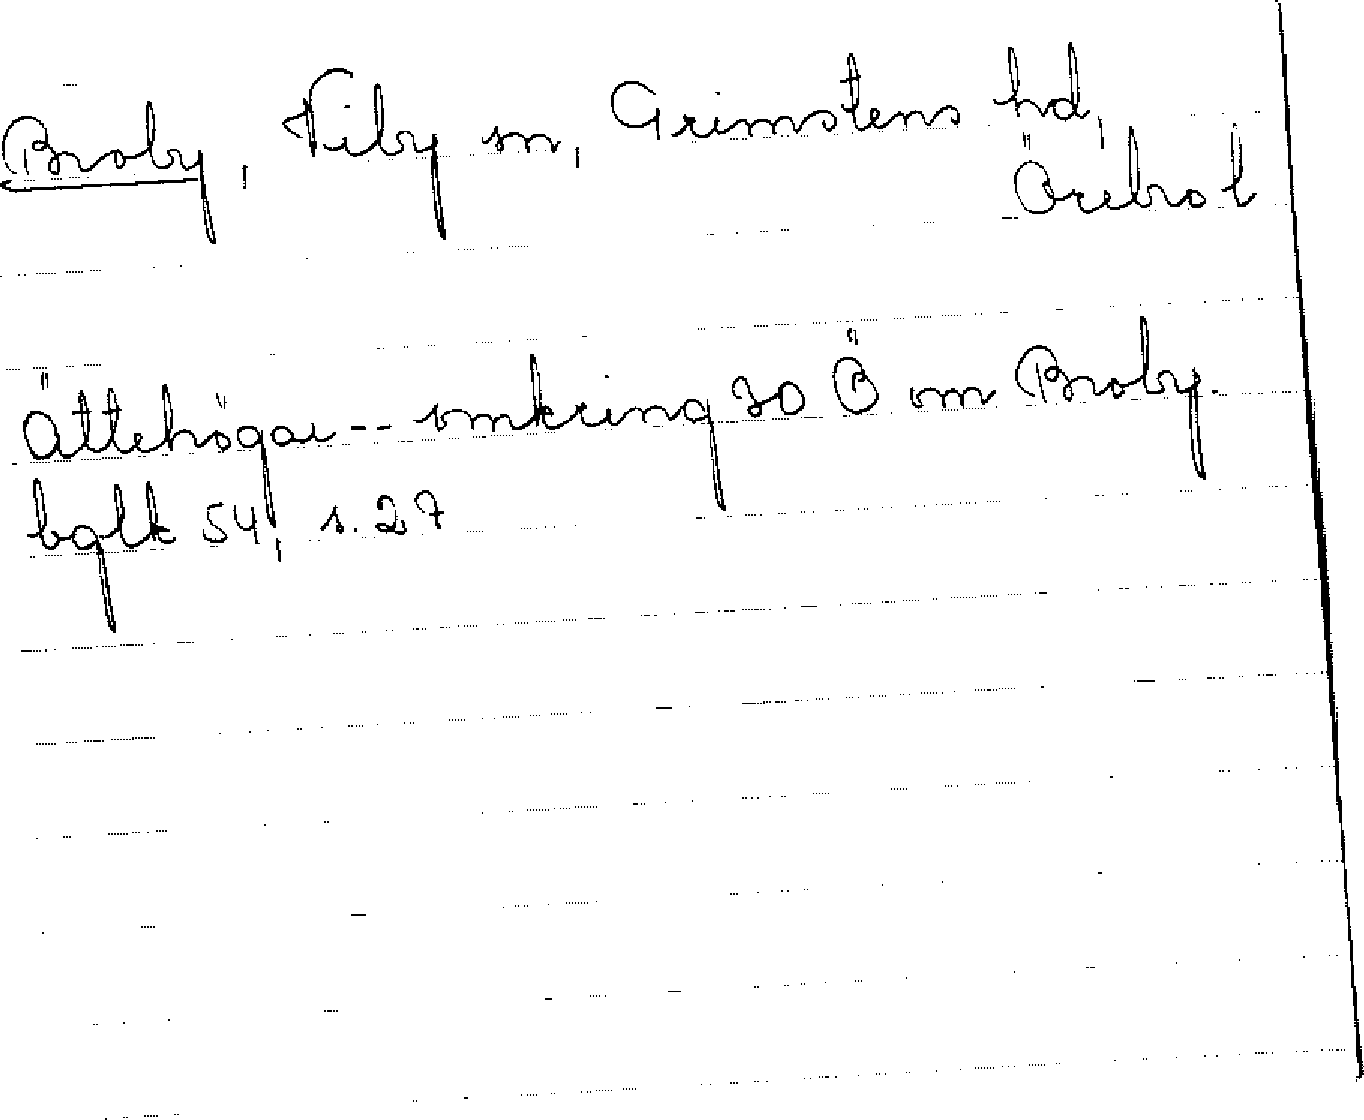 Broby, Viby sn, Grimstens hd,
Örebro l
Ättehögar -- omkring 30 Ö om Broby.
bglk 54, s. 27